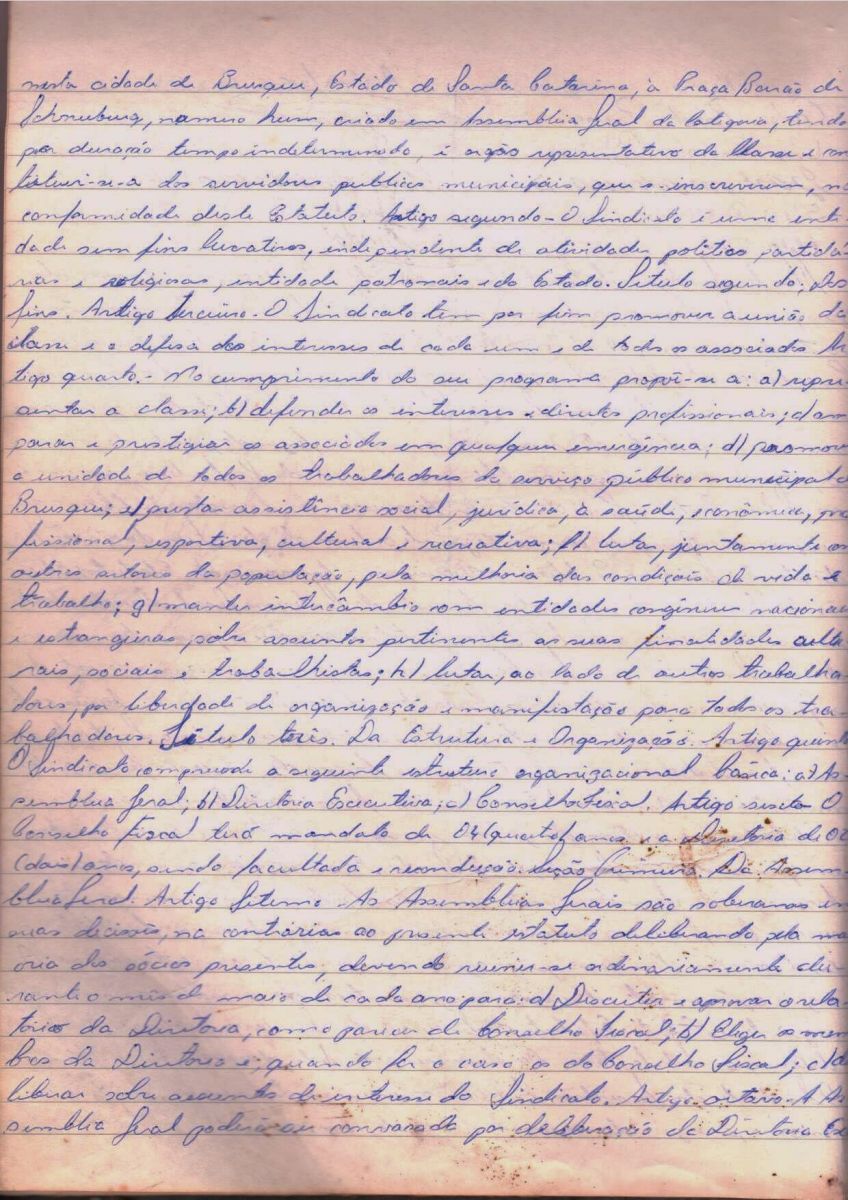 nesta cidade de Brusque, Estado de Santa Catarina, à Praça Barão de
Schneeburg, número hum, criado em Assembléia Geral da categoria, tendo
por duração tempo indeterminado, é orgão representativo da Classe e con
titui-se-a dos servidores publicos municipais, que se inscreverem, na
conformidade deste Estatuto. Artigo segundo - O Sindicato é uma enti
dade sem fins lucrativos, independente de atividades politico partidá-
rias e religiosas, entidade patronais e do Estado. Titulo segundo; Dos
fins. Artigo terceiro - O Sindicato tem por fim promover a união da
classe e a defesa dos interesses de cada um e de todos os associados. Ar
tigo quarto. - No cumprimento do seu programa propõe-se a: a) repre
sentar a classe; b) defender os interesses e direitos profissionais; c) am
parar e prestigiar os associados em qualquer emergência; d) promover
a unidade de todos os trabalhadores do serviço público municipal de
Brusque; e) prestar assistência social, jurídica, à saúde, econômica, pro
fissional, esportiva, cultural e recreativa; f) lutar, juntamente com
outros setores da população, pela melhoria das condições de vida e
trabalho; g) manter intercâmbio com entidades congêneres nacionais
e estrangeiras, sôbre assuntos pertinentes as suas finalidades cultu
rais, sociais e trabalhistas; h) lutar, ao lado de outros trabalha
dores, por liberdade de organização e manifestação para todos os tra-
balhadores. Título três. Da Estrutura e Organização. Artigo quinto
O Sindicato compreende a seguinte estrutura organizacional básica: a) As-
sembléia Geral; b) Diretoria Executiva; c) Conselho Fiscal. Artigo sexto - O
Conselho Fiscal terá mandato de 04 (quatro) anos e a Diretoria de 02
(dois) anos, sendo facultada a recondução. Seção Primeira. Da Assem-
bléia Geral. Artigo Setemo - As Assembléias Gerais são soberanas em
suas decisões, na contrárias ao presente estatuto deliberando pela mai
oria dos sócios presentes, devendo reunir-se ordinariamente du-
rante o mes de maio de cada ano para: a) Discutir e aprovar o rela-
tório da Diretoria, com o parecer do Conselho Fiscal; b) Eleger os mem
bros da Diretoria e; quando for o caso os do Conselho Fiscal; c) de
liberar sobre assuntos de interesse do Sindicato. Artigo oitavo - A As
sembléia Geral poderá ser convocada por deliberação da Diretoria Ex